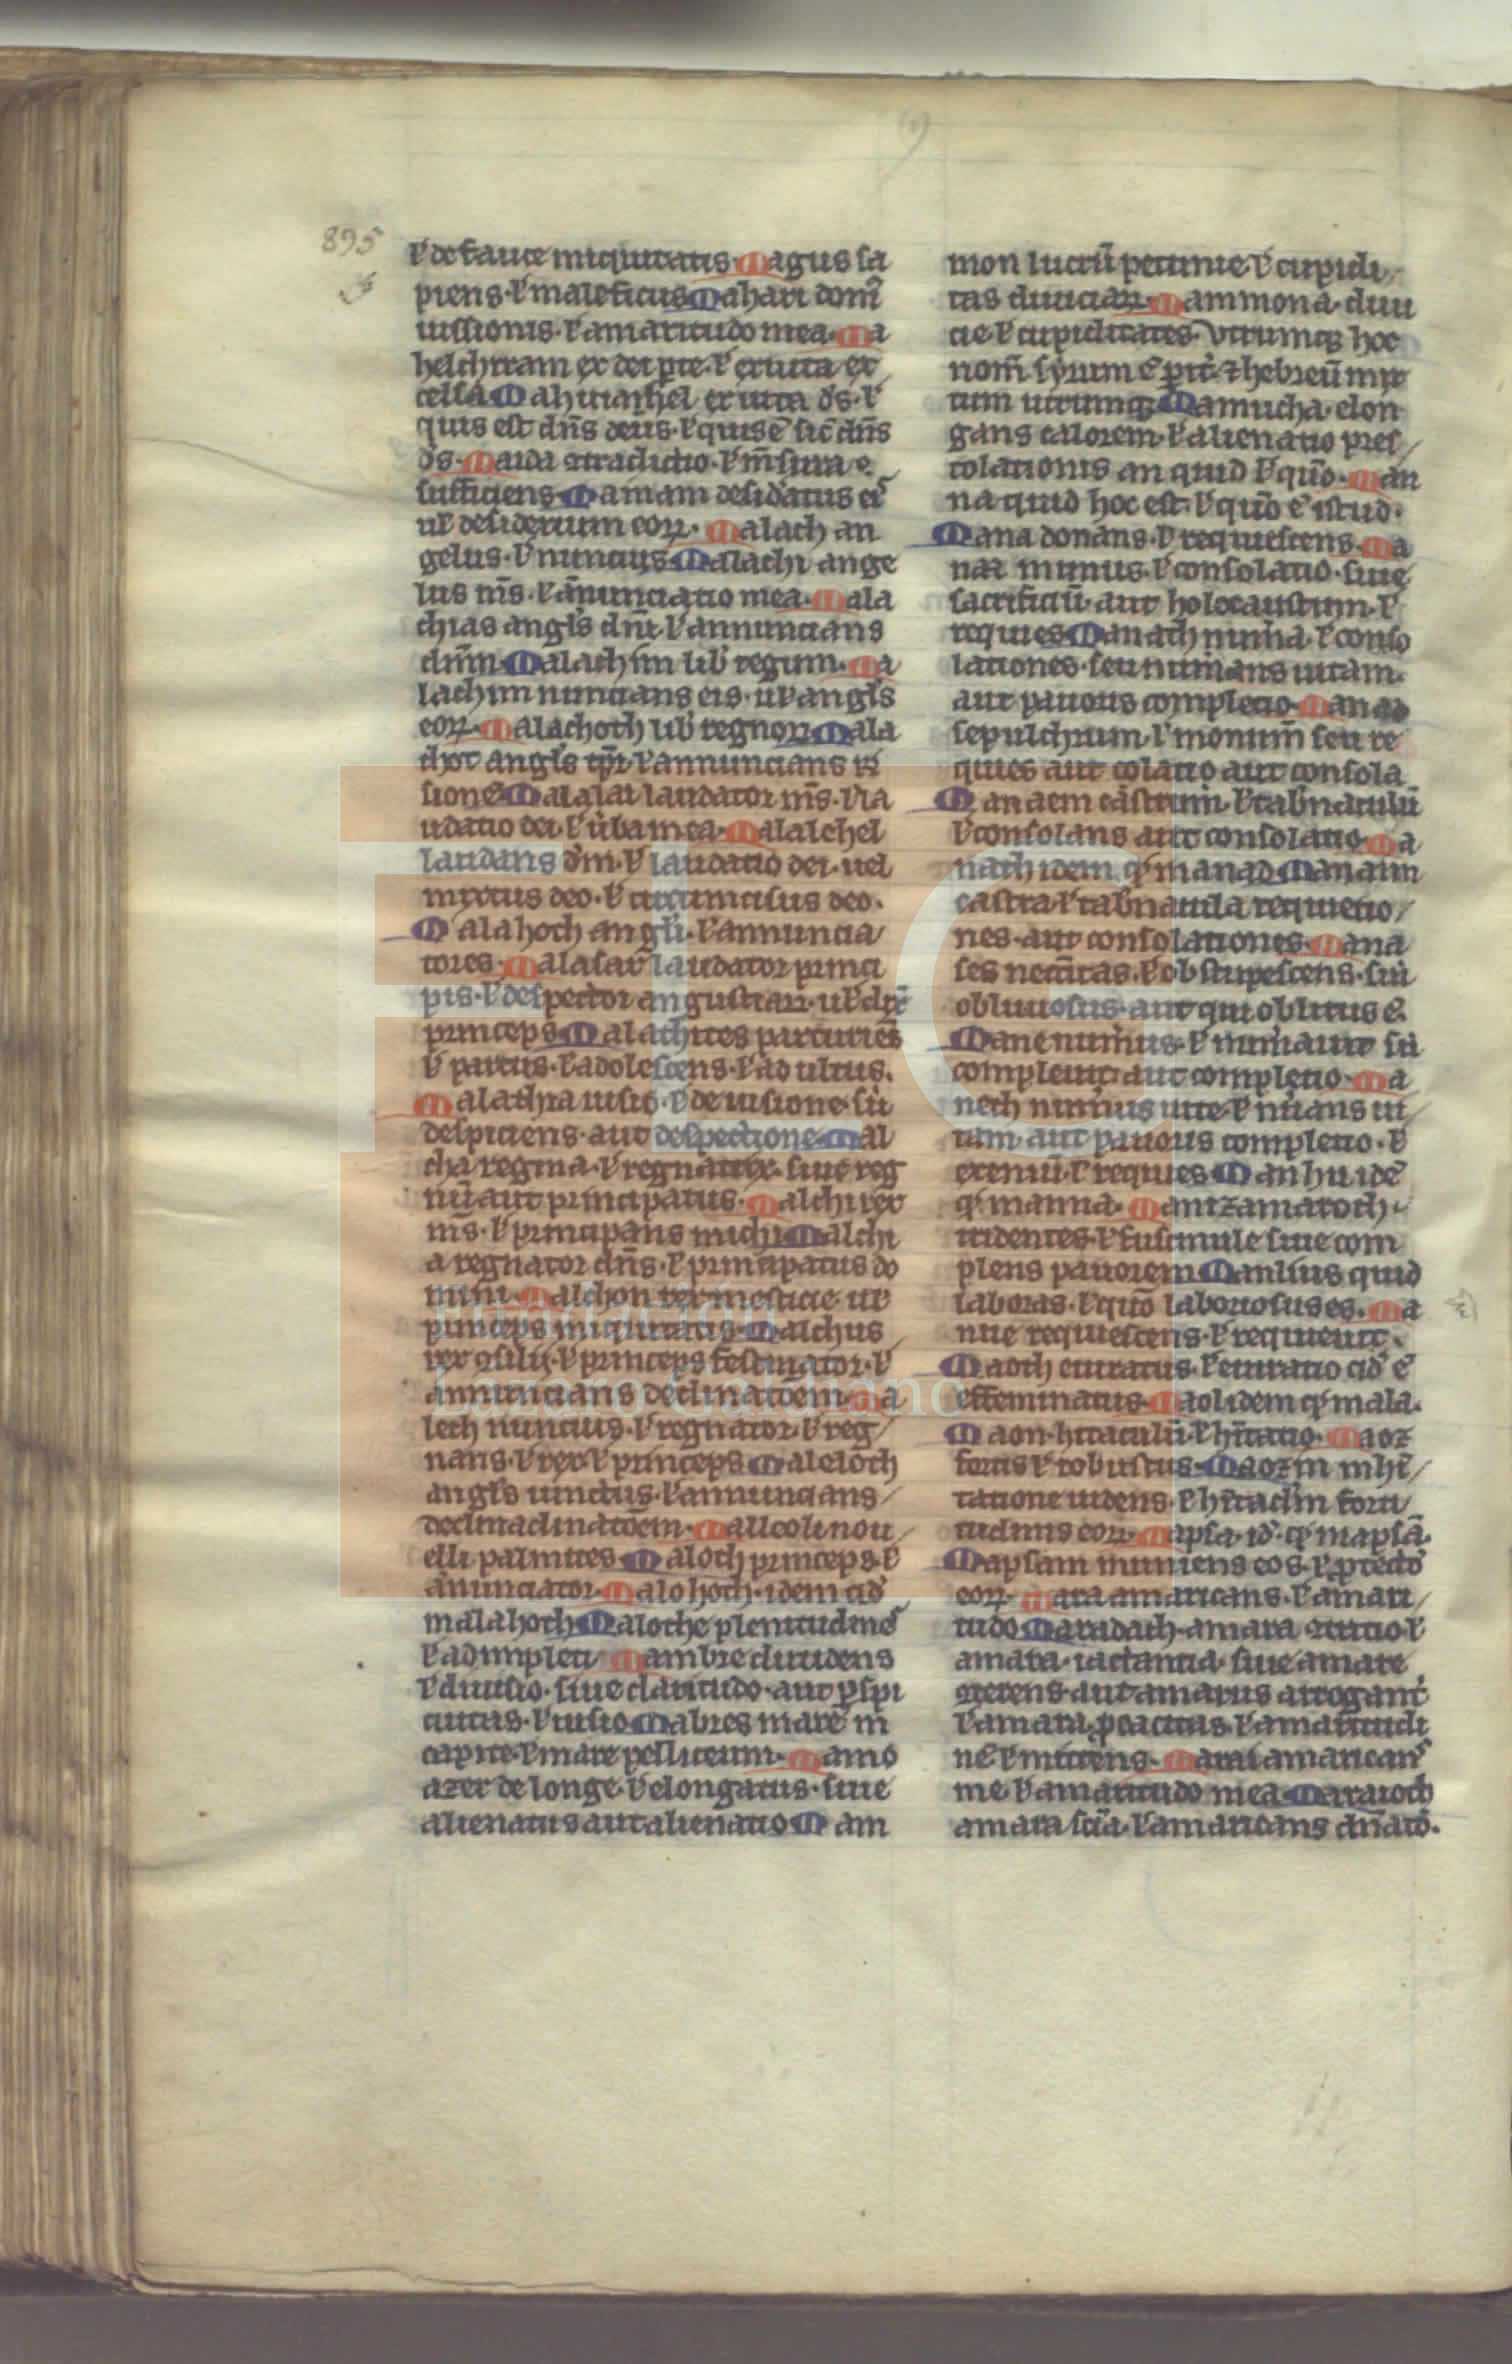 895
ł de fauce iniquitatis. Magus sa
piens. ł maleficus Mahari dom̄
uissionis. ł amaritudo mea. Ma
helchiram ex dei pte. ł exiuta ex
celsa Mahuiahel ex uita ds̄. ł
quis est dn̄s deus. ł quis ē sic̄ dn̄s
ds̄. Maida ꝯtradictio. ł m̄sura e
sufficiens. Mamam desid'atus ei
uł desiderium eoꝝ. Malach an
gelus. ł nuncius Malachi ange
lus m̄s. ł ānunciatio mea. Mala
chias angl's dn̄i. ł annuncians
dn̄m. Malachim lib' regum. Ma
lachim nuncians eis. uł angl's
eoꝝ. Malachoth lib' regnoꝝ Mala
chot angl's ł annuncians
sionē Malalai laudator m̄s. ł la
udatio dei. ł mea. Malalehel
laudans dm̄. ł laudatio dei. uel
mixtus deo. ł circumcisus deo.
Malahoch angl'i. ł annuncia
tores. Malasar laudator princi
pis. ł despector angustiaꝝ. uł
princeps Malathites parturiēs
ł partus. ł adolescens. ł adultus.
Malathia uisio. ł de uisione. siu
despiciens. aut despectione Mal
cha regina. ł regnatrix. siue reg
nū aut principatus. Malchi rex
m̄s. ł principans michi Malchi
a regnator dn̄s. ł principatus do
mini. Malchon rex mesticie. uł
princeps iniquitatis. Malchus
rex ꝯsilii. ł princeps festinator. ł
annuncians declinatōem. Ma
lech nuncius. ł regnator. ł reg
nans. ł rex ł princeps Maleloch
angl's uinctus. ł annuncians
declinaclinatōem. Malleoli nou
elli palmites Maloch princeps. ł
ānunciator. Malohoch. idem qd'
malahoch Maloche plenitudines
ł adimpleti Mambre diuidens
ł diuisio. siue claritudo. aut ꝑspi
cuitas. ł uisio Mabres mare in
capite. ł mare pelliceum. Mamo
azer de longe. ł elongatus. siue
alienatus aut alienatio Mam
mon lucrū pecunie ł cupidi
tas diuiciaꝝ. Mammona. diui
cie ł cupiditates. Vtrumqꝫ hoc
nom̄ syrum ē hebreū mix
tum utrumqꝫ Mamucha. elon
gans calorem. ł alienatio pres
tolationis an quid ł quō. Man
na quid hoc est. ł quō ē istud.
Mana donans. ł requiescens. Ma
naa munus. ł consolatio. siue
sacrificiū. aut holocaustum. ł
requies Manach ł conso
lationes. seu uitam.
aut pauoris completio. Manad
sepulchrum. ł monum̄ seu re
quies aut colatio aut consola
Manaem castrum. ł tab'naculū
ł consolans aut consolatio. Ma
nath idem qd' manad. Manaim
castra ł tab'nacula requietio
nes. aut consolationes. Mana
ses necc̄itas. ł obstupescens. siu
obliuiosus. aut qui oblitus ē.
Mane num̄us. ł siu
compleuit. aut completio. Ma
nech num̄us uite. ł ui
tam aut pauoris completio. ł
ł requies Manhu idē
qd' manna. Manzamaroth
tridentes. ł fuscinule siue com
plens pauorem Manlius quid
laboras. ł quō laboriosus es. Ma
nue requiescens. ł requieuit.
Maoch euiratus. ł euiratio qd' ē
effeminatus. Maol. idem qd' mala.
Maon. hitaculū ł hitatio. Maoz
fortis ł robustus. Maozin in hi
tatione uidens. ł hitac'lm forti
tudinis eoꝝ. Mapsa. id' qd' mapsā.
Mapsam muniens eos. ł ꝓtectō
eoꝝ. Mara amaricans. ł amari
tudo Maradach. amara ꝯtritio ł
amara. iactancia. siue amare
ꝯterens. aut amarus arrogans
ł amara. ł amaritudi
nē ł mittens. Marai amaricans
me ł amaritudo mea. Maraioth
amara ł amaricans dn̄atō.